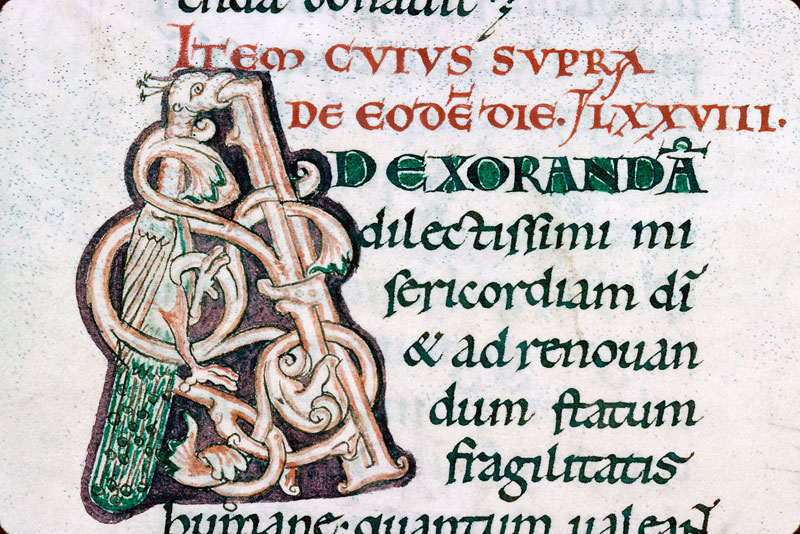 ITEM CVIVS SVPRA
DE EODE̅ DIE. LXXVIII.
AD EXORANDA̅
dilectissimi mi
sericordiam di̅
& ad renouan
dum statum
fragilitatis
humane; quantum ualean̅